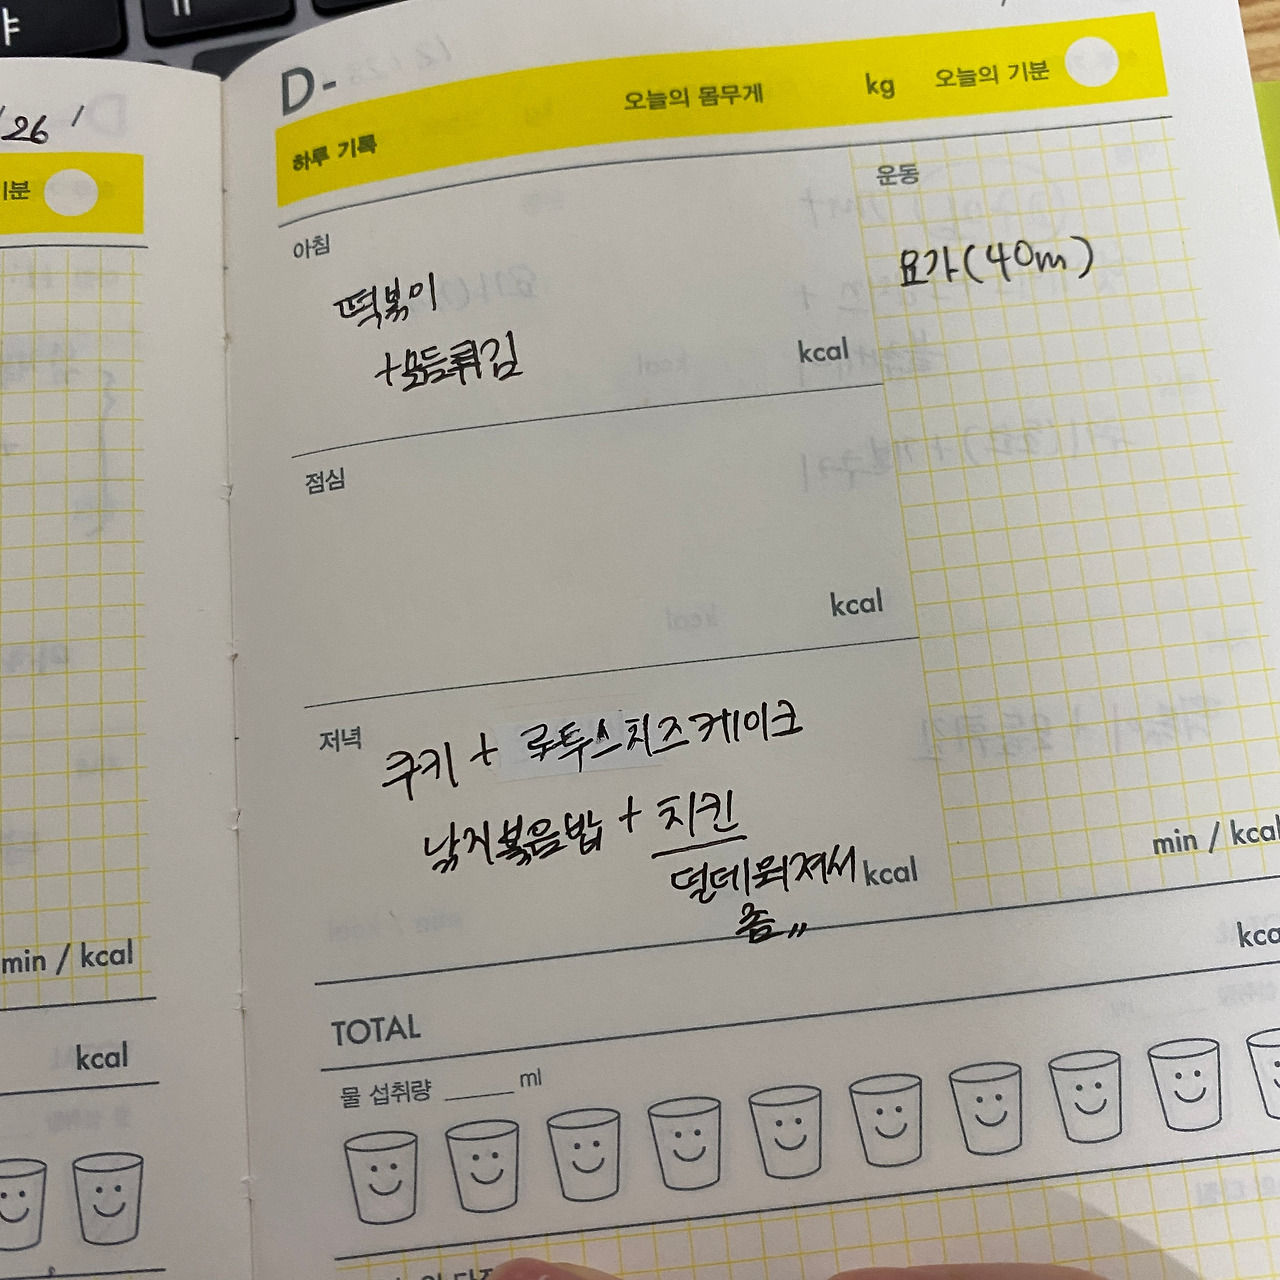 26 /
기분
min / kcal
kcal
D-
하루 기록
오늘의 몸무게 kg 오늘의 기분
아침
떡볶이
+모듬튀김
kcal
운동
요가(40m)
점심
kcal
저녁
쿠키 + 로투스치즈케이크
낚지볶음밥 + 치킨
덜데워져서
좀,,
kcal
min / kcal
TOTAL
물 섭취량 ____ ml